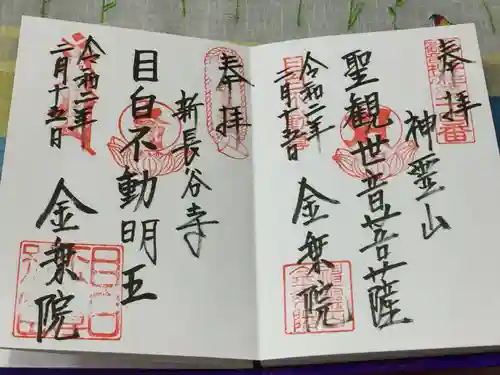 奉拝
神霊山
聖観世音菩薩
令和二年
二月十五日
金乗院
奉拝
新長谷寺
目白不動明王
令和二年
二月十五日
金乗院